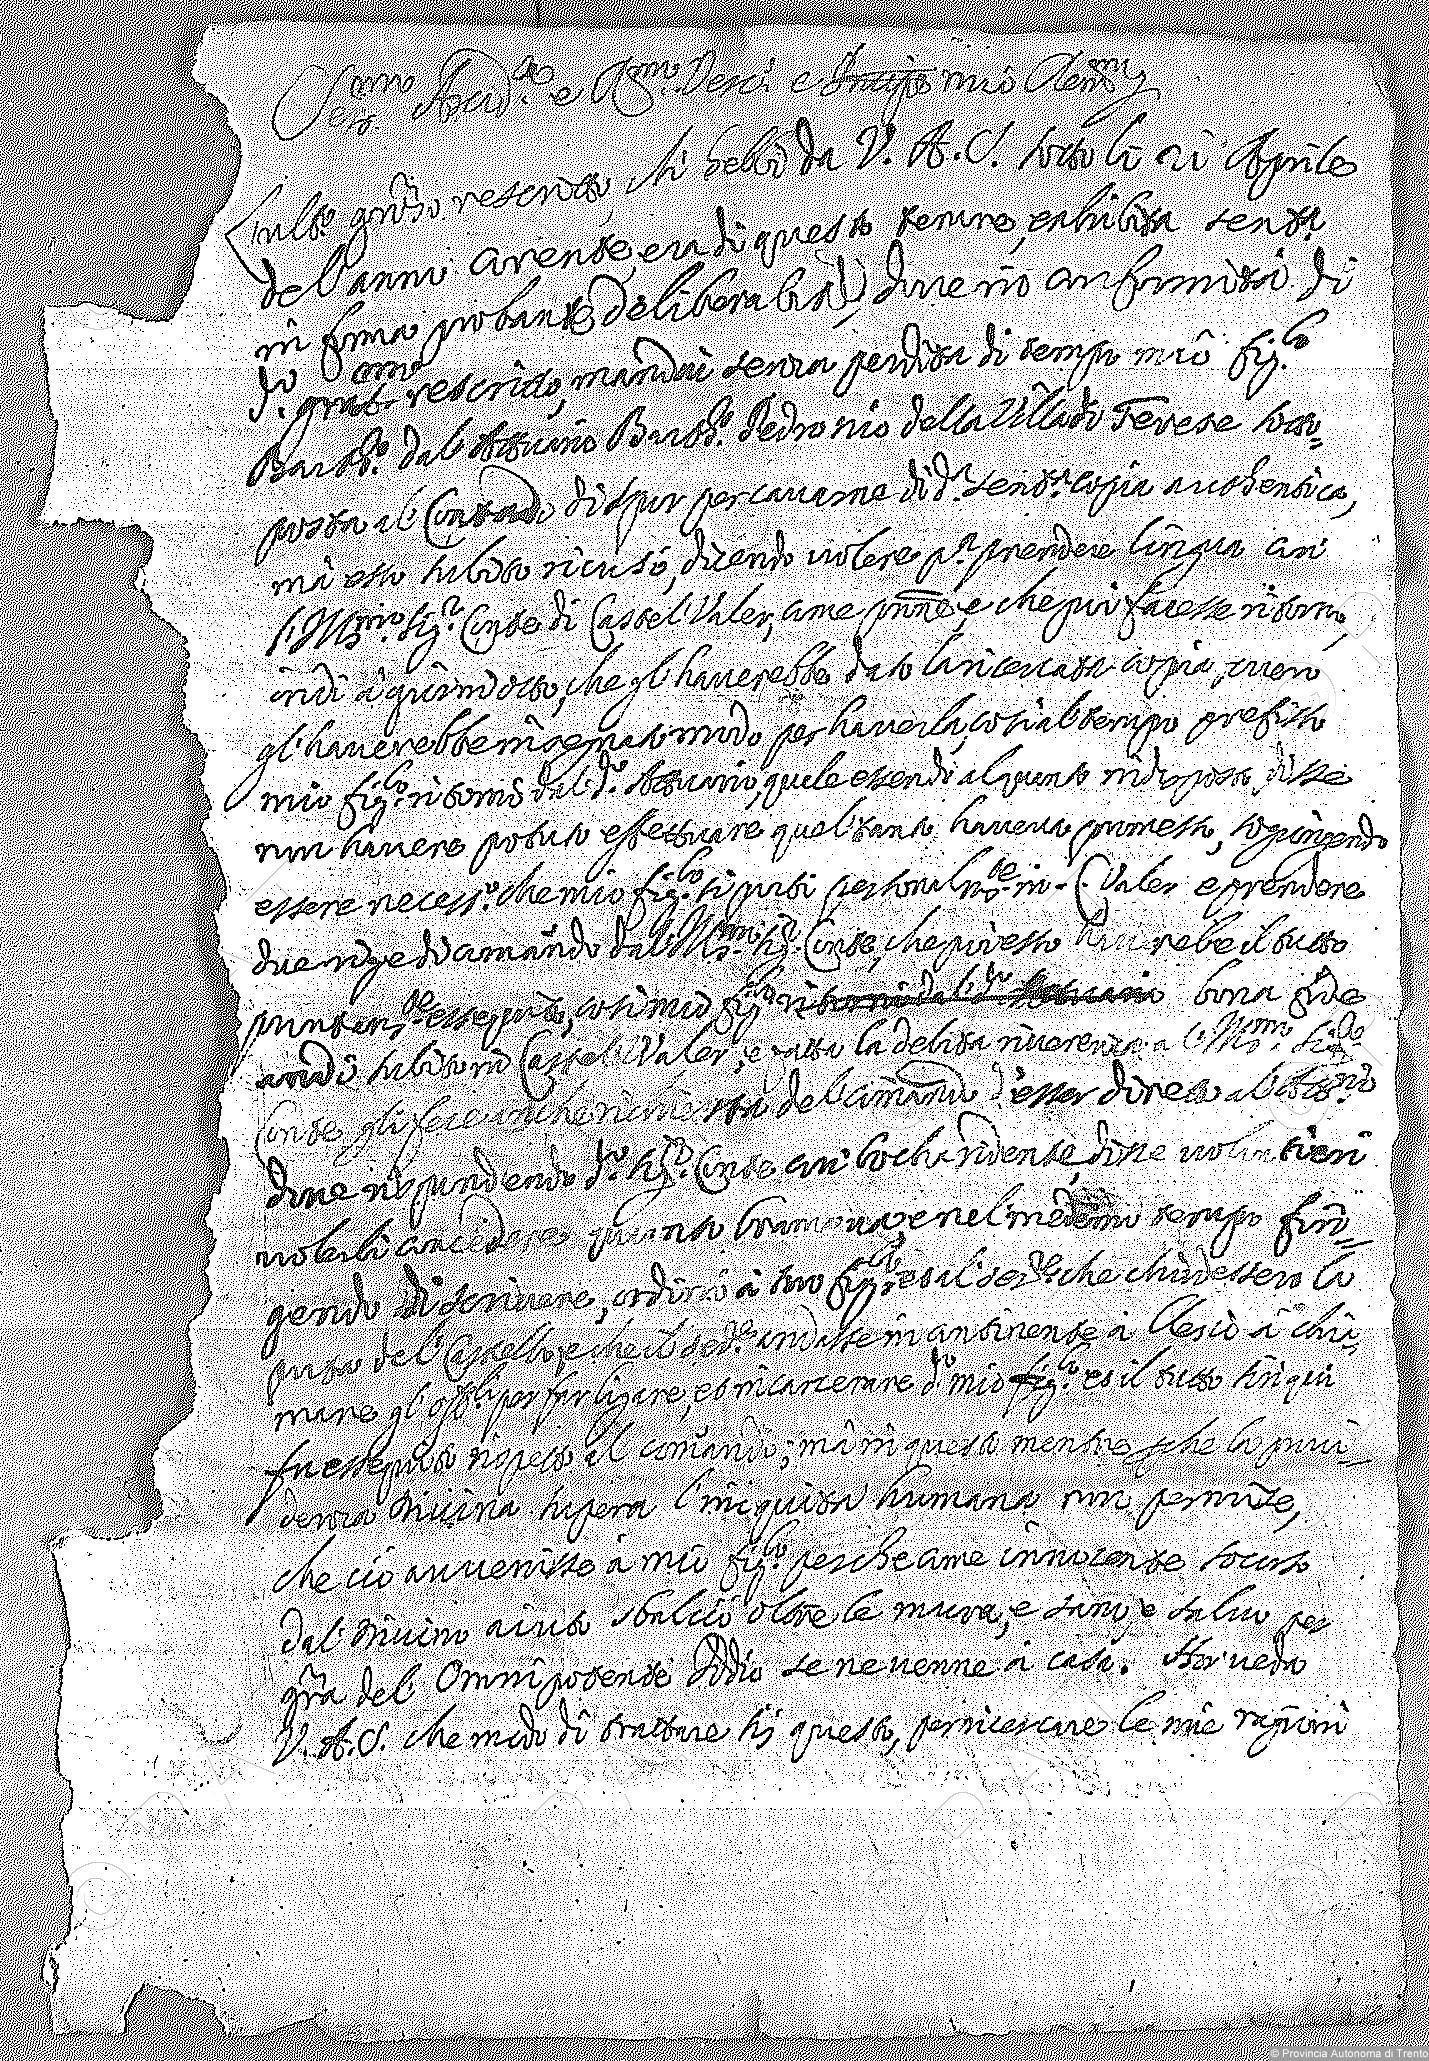 Ser.mo Arcid.a e R.mo Vesci e Principe mio Clem.mo
In l'alt.o gra.so rescritto, chi hebbi da V. A. S. sotto li 21 Aprile
del'anno corente, era di questo tenore, exhibita sent.a
in forma probante deliberabitur, dove io in conformità di
d.o gra.mo rescritto, mandai senza perdita di tempo mio fig.lo
Bart.o dal'Attuario Bart.o Pedronio della Villa di Terese sotto=
posta al Contado di Spur per cavarne di d.a sent.a copia authentica,
mà esso subito ricusò, dicendo volere p.a prendere lingua con
l'Ill.mo Sig.r Conte di Castel Valer, come pone, e che poi facesse ritorno,
indi à giorni otto, che gl'haverebbe dato la ricercata copia, overo
gl'haverebbe insegnato modo per haverla, così al tempo prefisso
mio fig.lo ritornò dal d.o Attuario, quale essendo alquanto indisposto, disse
non havere potuto effettuare quel tanto haveva promesso, sogiongendo
esser necess.o che mio fig.lo si porti personalm.te in C. Valer e prendere
due rige di comando dal'Ill.mo Sig.r Conte, che poi esso haverebe il tutto
puntualm.te esseguito, così mio fig.lo ritornò dal d.o Attuario bona fide
andò subito in Castel Valer, e fatta la debita riverenza a l'Ill.mo Sig.r
Conte gli fece anche richiesta del comando d'esser direto al'Att.rio
dove rispondendo d.o Sig.r Conte con bocha ridente, disse volontieri
volerli concedere quanto bramava, e nel medemo tempo fin=
gendo di scrivere, ordinò à suo fig.lo et al ser.re che chiudessero la
porta del Castello, e che il ser.re andasse in continente à Clesio à chia=
mare gl'off.li per far ligare, et incarcerare d.o mio fig.lo et il tutto sin qui
fu esseguito rispetto al comando; mà in questo mentre, che la provi=
denza Divina supera l'iniquità humana non permise,
che ciò avvenisse à mio fig.lo perche come innocente socorso
dal Divino aiuto sbalciò oltre le mura, e sano, e salvo per
gra del' Omnipotente Iddio se ne venne à casa. Hor veda
V. A. S. che modo di trattare sij questo, per ricercare le mie ragioni
© Provincia Autonoma di Trento